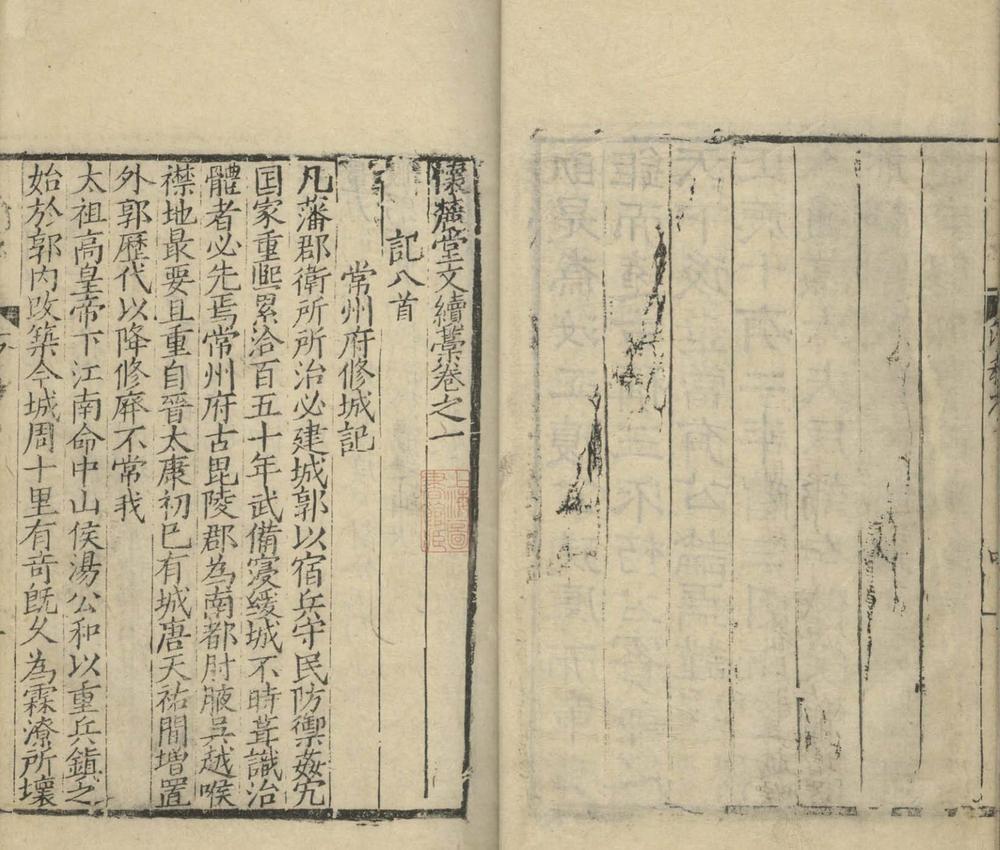 懷麓堂文續藁卷之一
記八首
常州府修城記
凡藩郡衛所所治必建城郭以宿兵守民防禦姦宄
国家重熈累洽百五十年武備寖緩城不時葺識治
體者必先焉常州府古毘陵郡為南都肘腋吳越喉
襟地最要且重自晉太康初已有城唐天祐間增置
外郭歷代以降修廃不常我
太祖高皇帝下江南命中山侯湯公和以重兵鎮之
始於郭内改築今城周十里有竒旣久為霖潦所壞